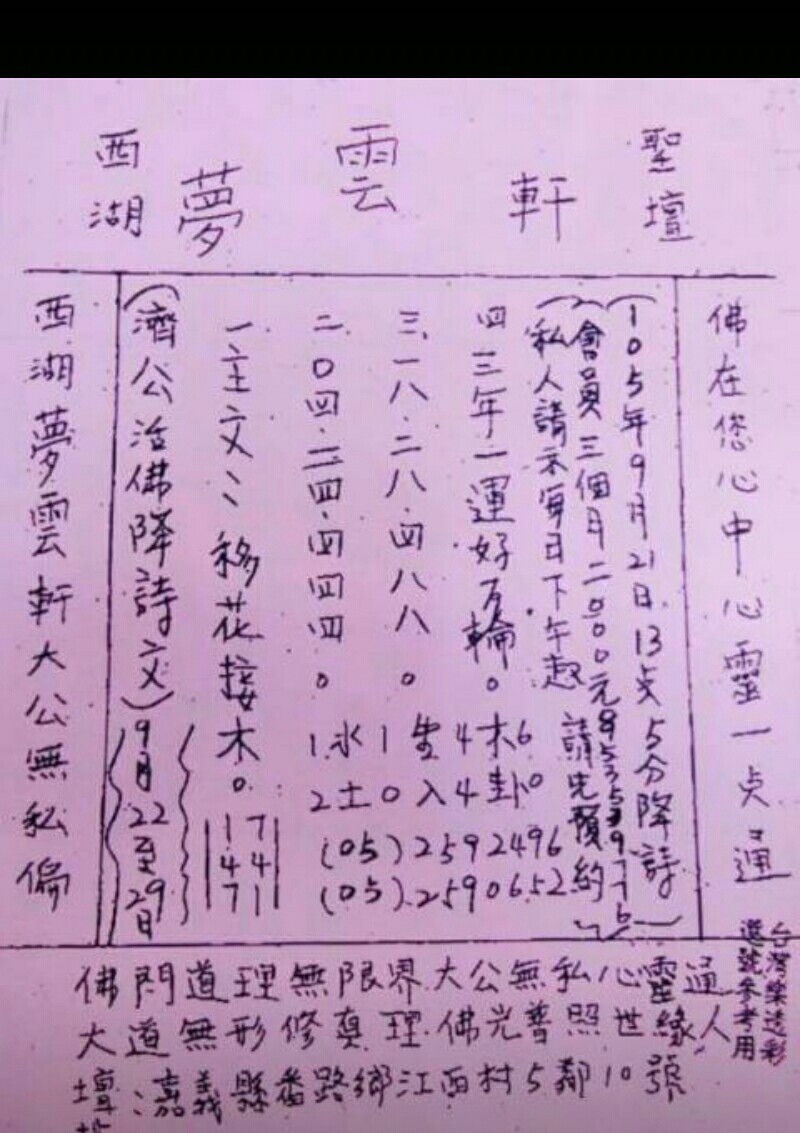 西湖 夢雲軒 聖壇
佛在您心中心靈一点通
(105年9月21日13点5分降詩)
(會員三個月二000元
私人請示每日下午起 請先預約)
四三年一運好万輪。木6
卦0
三.一八.二八.四八八。 4
入4
二.0四.二四.四四四。 1.水1
2土0
(05)2592496
(05)2590652
一、主文:移花接木。
17
44
71
(濟公活佛降詩文)
9月22至29日
西湖夢雲軒大公無私偏
佛門道理無限界大公無私心靈通
大道無形修真理佛光普照世緣人
壇 嘉義縣番路鄉江西村5鄰10號
台灣樂透彩
選號參考用